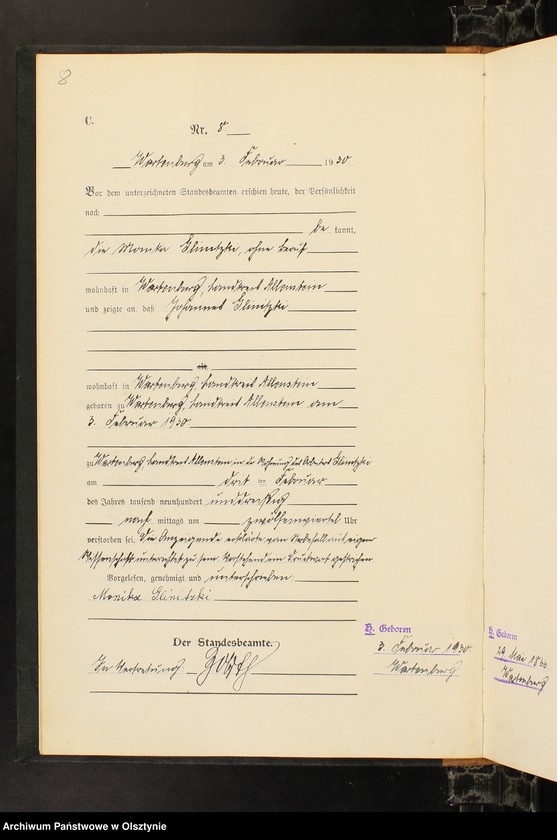 8
C.
Nr. 8
Wartenburg am 3. Februar 1930
Vor dem unterzeichneten Standesbeamten erschien heute, der Persönlichkeit
nach
be kannt,
die Monika Glinitzki, ohne Beruf
wohnhaft in Wartenburg, Landkreis Allenstein
und zeigte an, daß Johannes Glinitzki
alt
wohnhaft in Wartenburg, Landkreis Allenstein
geboren zu Wartenburg, Landkreis Allenstein am
3. Februar 1930
zu Wartenburg, Landkreis Allenstein in der Wohnung des Arbeiters Glinitzki
am drei ten Februar
des Jahres tausend neunhundert unddreißig
nach mittags um zwölfeinviertel Uhr
verstorben sei. Die Anzeigende erklärte vom Sterbefall aus eigener
Wissenschaft unterrichtet zu sein. Vorstehend ein Druckwort gestrichen
Vorgelesen, genehmigt und unterschrieben
Monika Glinitzki
Der Standesbeamte.
In Vertretung
H. Geboren
3. Februar 1930
Wartenburg
H. Geboren
Mai
Wartenburg
Archiwum Państwowe w Olsztynie